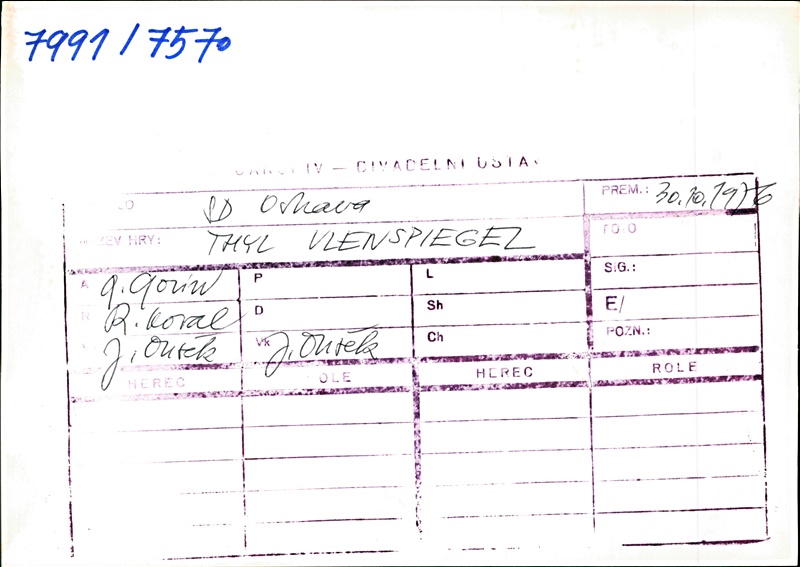 7991 / 7570
IV — DIVADELNÍ ÚSTAV
LO SD Ostrava PREM.: 30.10.1976
ZEV HRY: THYL ULENSPIEGEL FOTO
A G. Gorin P L SIG.:
R R. Koval D Sh E/
J. Dušek Vk J. Dušek Ch POZN.:
HEREC OLE HEREC ROLE